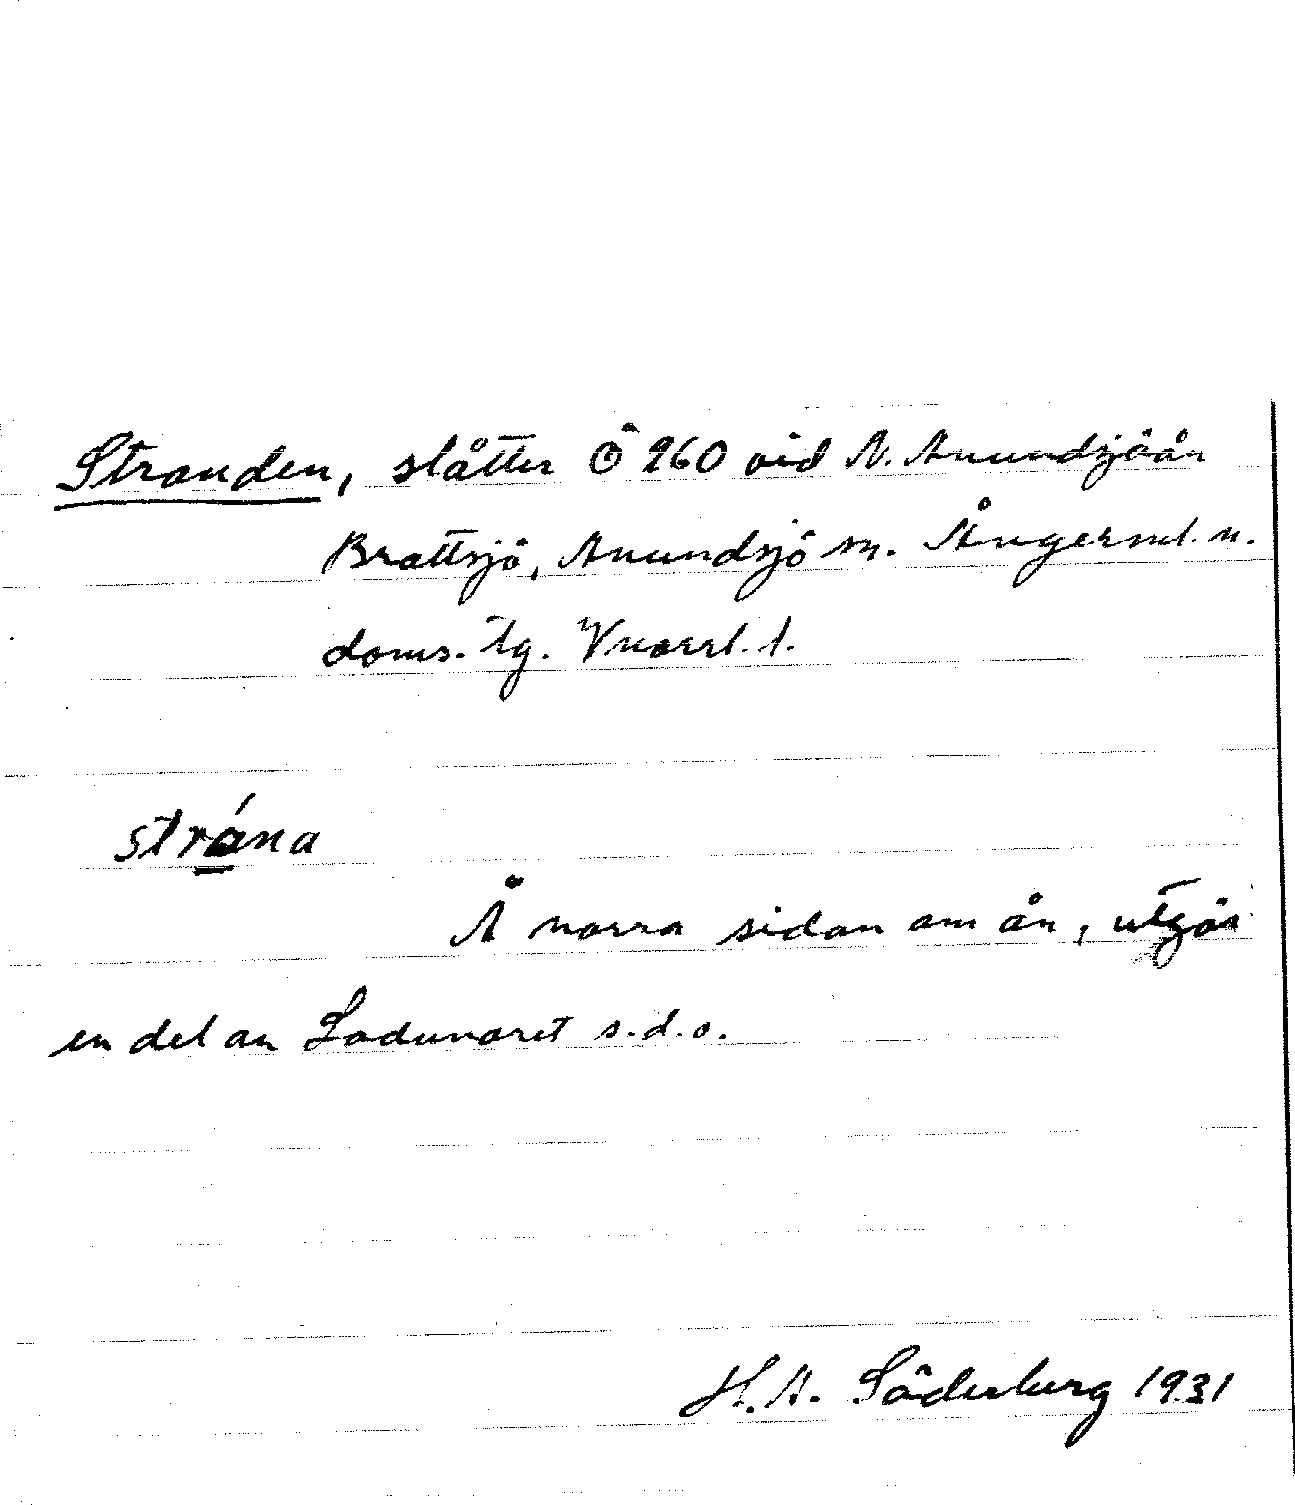 Stranden, slåtter Ö 260 vid N. Anundsjöån
Brattsjö, Anundsjö sn. Ångerml. n.
doms. tg. Vnorrl. l.
strána
Å norra sidan om ån, utgör
en del av Laduvaret s.d.o.
H.A. Söderberg 1931